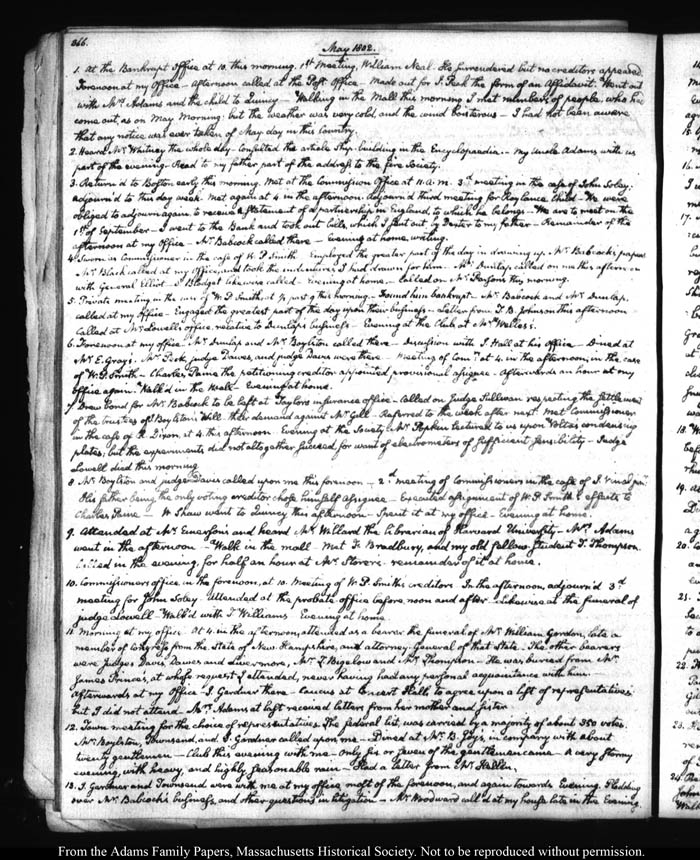 366.
May 1802.
1. At the Bankrupt Office at 10. this morning. 1st Meeting, William Neal. He surrendered but no creditors appeared.
Forenoon at my Office. Afternoon called at the Post Office. Made out for J. Peck the form of an Affidavit. Went out
with Mrs Adams and the child to Quincy. Walking in the Mall this morning I met numbers of people, who had
come out, as on May Morning: but the weather was very cold, and the wind boisterous. I had not been aware
that any notice was ever taken of May day in this Country.
2. Heard Mr Whitney the whole day. Consulted the article Ship-building in the Encyclopaedia. My Uncle Adams with us
part of the evening. Read to my father part of the address to the fire Society.
3. Return'd to Boston, early this morning. Met at the Commission Office at 11. A.M. 3d meeting in the case of John Soley.
adjourn'd to this day week. Met again at 4 in the afternoon. adjourn'd third meeting for Roylance Child. We were
obliged to adjourn again to receive a statement of a partnership in England, to which he belongs. We are to meet on the
1st of September. I went to the Bank and took out bills, which I sent out by Porter to my father. Remainder of the
afternoon at my Office. Mr Babcock called there. evening at home, writing.
4. Sworn as Commissioner in the case of W. P. Smith. Employed the greater part of the day in drawing up Mr Babcock's papers
Mr Black called at my Office, and took the indentures I had drawn for him. Mr Dunlap called on me this afternoon
with General Elliot. J. Blodget likewise called. Evening at home. Called on Mr Parsons this morning.
5. Private meeting in the case of W. P. Smith, at 1/2 past 9 this morning. Found him bankrupt. Mr Babcock and Mr Dunlap,
called at my Office. Engaged the greatest part of the day upon their business. Letter from T. B. Johnson this afternoon.
Called at Mr Lowell's office, relative to Dunlap's business. Evening at the Club at Mr Welles's.
6. Forenoon at my office. Mr Dunlap and Mr Boylston called there. Discussion with J. Hall at his Office. Dined at
Mr E. Gray's. Mr Peck, judge Dawes, and judge Davis were there. Meeting of Comrs at 4. in the afternoon, in the case
of W. P. Smith. Charles Paine the petitioning creditor appointed provisional assignee. Afterwards an hour at my
Office again. Walk'd in the Mall. Evening at home.
7. Drew bond for Mr Babcock to be left at Taylor's insurance office. Called on Judge Sullivan respecting the settlement
of the trustees of Boylston's Will. their demand against Mr Gill. Referred to the week after next. Met Commissioner
in the case of R. Dixon, at 4. this afternoon. Evening at the Society. Mr Popkin lectured to us upon Volta's condensing
plates; but the experiments did not altogether succeed for want of electrometers of sufficient sensibility. Judge
Lowell died this morning.
8. Mr Boylston and judge Davis called upon me this forenoon. 2d meeting of Commissioners in the case of J. Vinal junr
His father being the only voting creditor chose himself assignee. Executed assignment of W. P. Smith's effects to
Charles Paine. W. Shaw went to Quincy this afternoon. Spent it at my office. Evening at home.
9. Attended at Mr Emerson's and heard Mr Willard the Librarian of Harvard University. Mrs Adams
went in the afternoon. Walk in the mall. Met F. Bradbury, and my old fellow-student T. Thompson.
Called in the evening, for half an hour at Mr Storer's. remainder of it at home.
10. Commissioners office in the forenoon, at 10. Meeting of W. P. Smith's creditors. In the afternoon, adjourn'd 3d
meeting for John Soley. Attended at the probate office before noon and after. Likewise at the funeral of
judge Lowell. Walk'd with T. Williams. Evening at home.
11. Morning at my office. At 4. in the afternoon, attended as a bearer the funeral of Mr William Gordon, late a
member of Congress from the State of New-Hampshire, and attorney General of that State. The other bearers
were Judges Davis, Dawes and Livermore, Mr T. Bigelow and Mr Thompson. He was buried from Mr
James Prince's, at whose request I attended, never having had any personal acquaintance with him.
Afterwards at my Office. J. Gardner there. Caucus at Concert Hall to agree upon a list of representatives
but I did not attend. Mrs Adams at last received letters from her mother and sister.
12. Town meeting for the choice of representatives. The federal list, was carried by a majority of about 350 votes.
Mr Boylston, Townsend, and J. Gardner called upon me. Dined at Mr B. Joy's, in company with about
twenty gentlemen. Club this evening with me. Only six or seven of the gentlemen came. A very stormy
evening, with heavy, and highly seasonable rain. Had a letter from Mr Hellen.
13. J. Gardner and Townsend were with me at my office, most of the forenoon, and again towards Evening. Plodding
over Mr Babcock's business, and other questions in litigation. Mr Woodward call'd at my house late in the Evening.
From the Adams Family Papers, Massachusetts Historical Society. Not to be reproduced without permission.